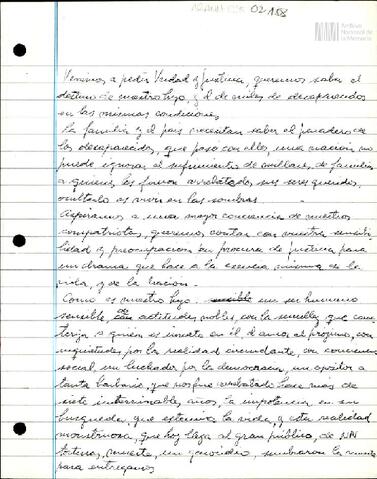 02158
Archivo
Nacional de
la Memoria
Venimos a pedir Verdad y Justicia, queremos saber el
destino de nuestro hijo y el de miles de desaparecidos
en las mismas condiciones
La familia y el país necesitan saber el paradero de
los desaparecidos, que pasó con ellos, una nación no
puede ignorar el sufrimiento de millares de familias
a quienes les fueron arrebatados sus seres queridos,
ocultarlo es vivir en las sombras.
Aspiramos a una mayor conciencia de nuestros
compatriotas, queremos contar con vuestra sensibi-
lidad y preocupación en procura de justicia para
un drama que hace a la esencia misma de la
vida, y de la Nación.
Como es nuestro hijo un ser humano
sensible, de actitudes nobles, con la sencillez que carac-
teriza a quién es innato en él el amor al prójimo, con
inquietudes por la realidad circundante, con conciencia
social, un luchador por la democracia, un opositor a
tanta barbarie, que nos fue arrebatado hace más de
siete interminables años, la impotencia en su
búsqueda, que extermina la vida, y esta realidad
monstruosa, que hoy llega al gran público, de NN
torturas, muerte, un genocidio, sembraron la muerte
para entregarnos